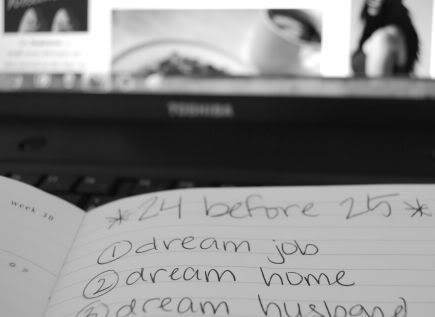 TOSHIBA
week 30
*24 before 25*
① dream job
② dream home
③ dream husband